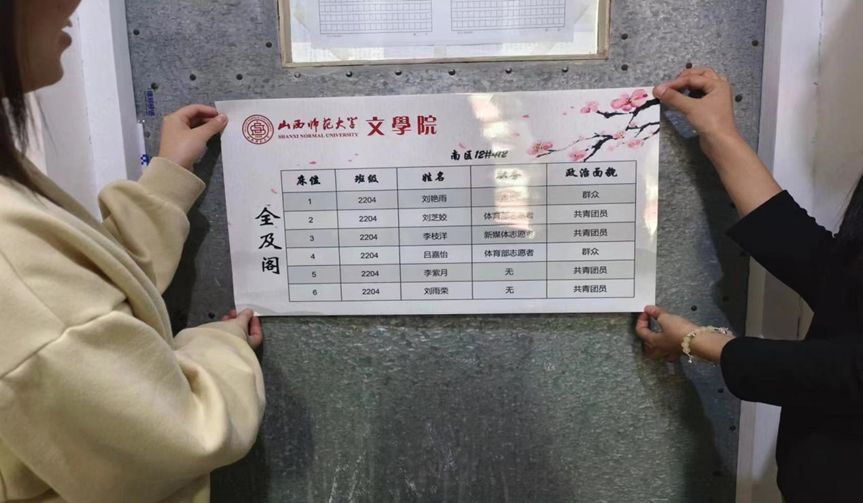 山西师范大学 文學院
SHANXI NORMAL UNIVERSITY
南区12#412
全及阁
床位 班级 姓名 政治面貌
1 2204 刘艳雨 群众
2 2204 刘芝姣 共青团员
3 2204 李枝洋 新媒体志愿者 共青团员
4 2204 吕嘉怡 体育部志愿者 群众
5 2204 李紫月 无 共青团员
6 2204 刘雨荣 无 共青团员